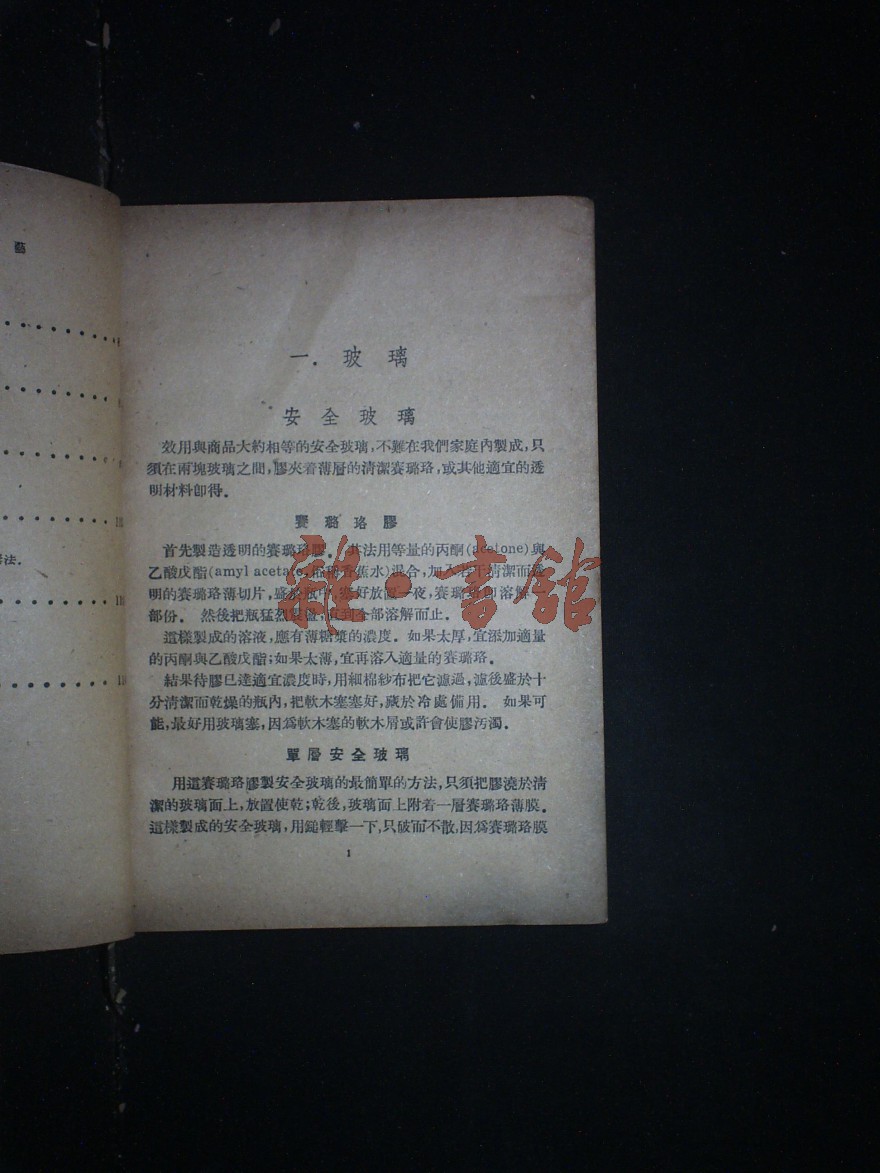 藝
法.
一. 玻璃
安全玻璃
效用與商品大約相等的安全玻璃,不難在我們家庭內製成,只
須在兩塊玻璃之間,膠夾着薄層的清潔賽璐珞,或其他適宜的透
明材料卽得。
賽璐珞膠
首先製造透明的賽璐珞膠。其法用等量的丙酮(acetone)與
乙酸戊酯(amyl acetate,俗稱香蕉水)混合,加入若干清潔而透
明的賽璐珞薄切片,盛於瓶中,塞好放置一夜,賽璐珞卽溶解
部份。 然後把瓶猛烈,直到全部溶解而止。
這樣製成的溶液,應有薄糖漿的濃度。 如果太厚,宜添加適量
的丙酮與乙酸戊酯;如果太薄,宜再溶入適量的賽璐珞。
結果待膠已達適宜濃度時,用細棉紗布把它濾過,濾後盛於十
分清潔而乾燥的瓶內,把軟木塞塞好,藏於冷處備用。 如果可
能,最好用玻璃塞,因爲軟木塞的軟木屑或許會使膠汚濁。
單層安全玻璃
用這賽璐珞膠製安全玻璃的最簡單的方法,只須把膠澆於清
潔的玻璃面上,放置使乾;乾後,玻璃面上附着一層賽璐珞薄膜。
這樣製成的安全玻璃,用鎚輕擊一下,只破而不散,因爲賽璐珞膜
1
雜·書館